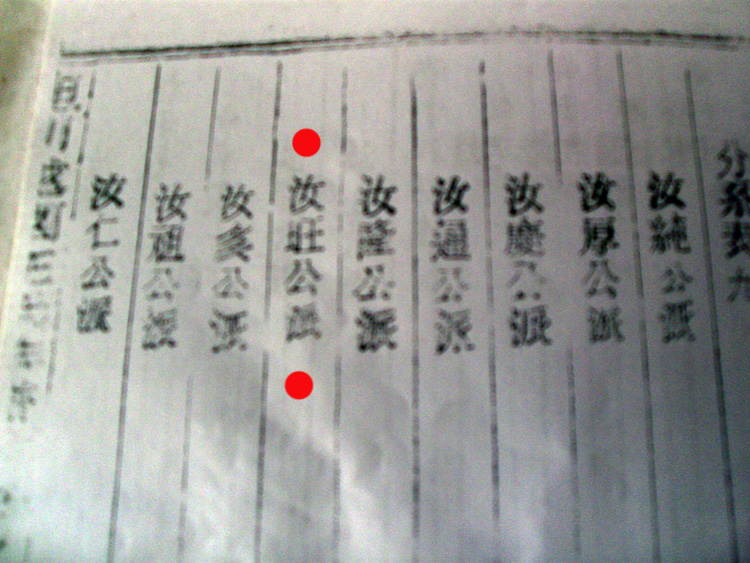 分派表九
汝純公派
汝厚公派
汝慶公派
汝通公派
汝隆公派
汝旺公派
汝公派
汝祖公派
汝仁公派